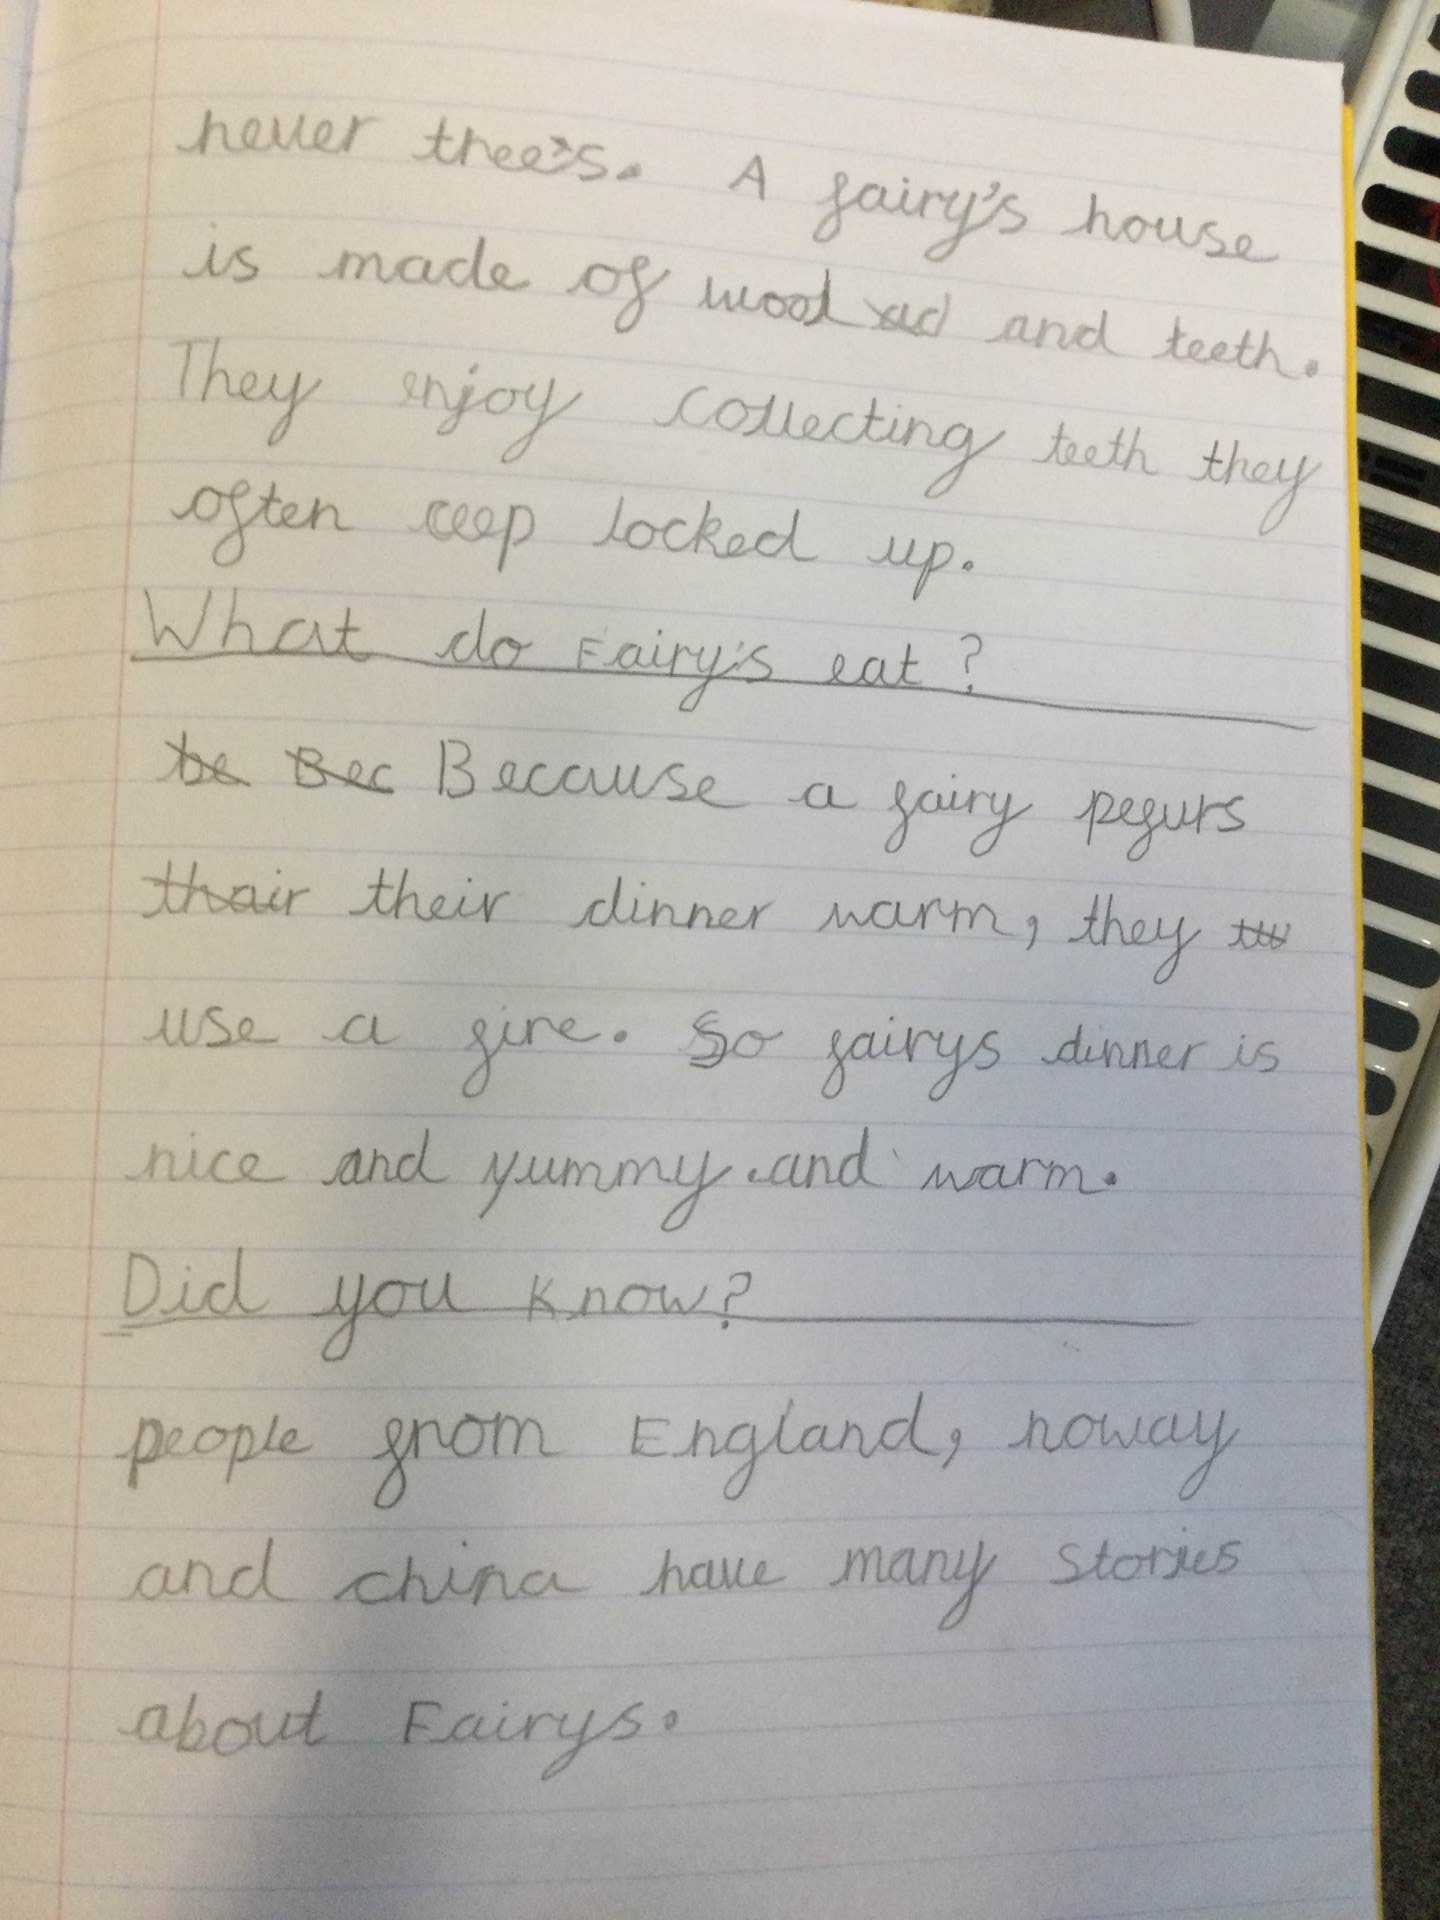 never thee's. A fairy's house
is made of wood ad and teeth.
They enjoy collecting teeth they
often ceep locked up.
What do Fairy's eat?
be Bec Because a fairy pefurs
thair their dinner warm, they
use a fire. So fairys dinner is
nice and yummy and warm.
Did you know?
people from England, noway
and china have many stories
about Fairys.